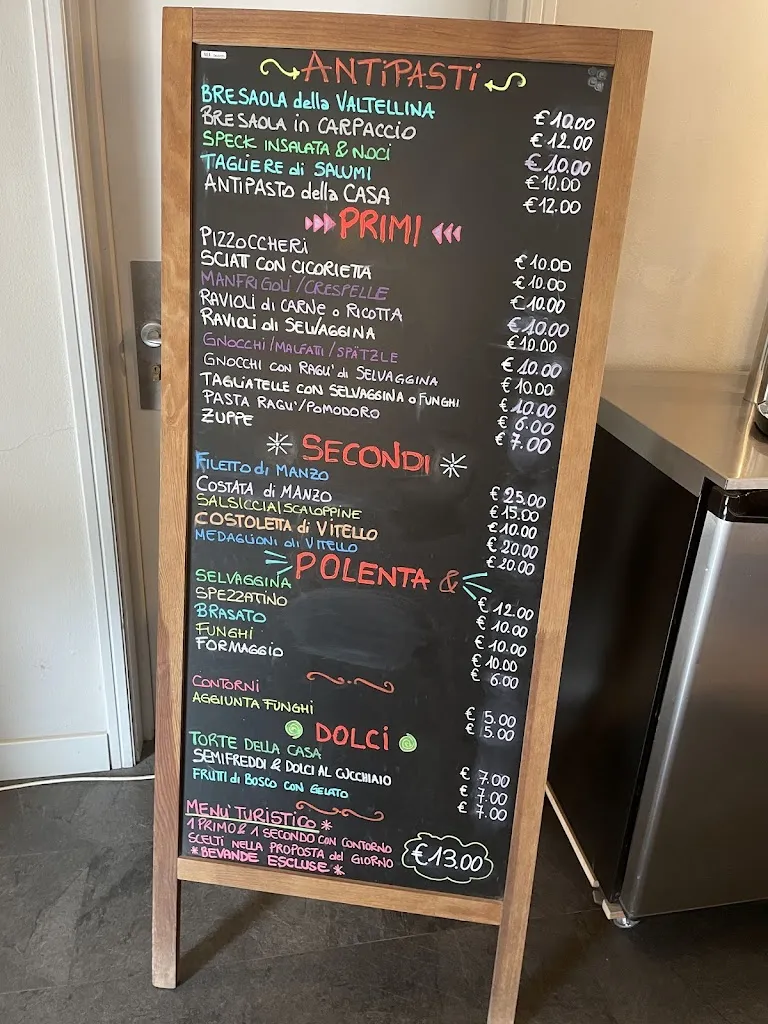 ANTIPASTI
BRESAOLA della VALTELLINA € 10.00
BRESAOLA in CARPACCIO € 12.00
SPECK INSALATA & NOCI € 10.00
TAGLIERE di SALUMI € 10.00
ANTIPASTO della CASA € 12.00
PRIMI
PIZZOCCHERI € 10.00
SCIATT CON CICORIETTA € 10.00
MANFRIGOLI/CRESPELLE € 10.00
RAVIOLI di CARNE o RICOTTA € 10.00
RAVIOLI di SELVAGGINA € 10.00
GNOCCHI/MALFATTI/SPÄTZLE € 10.00
GNOCCHI CON RAGU' di SELVAGGINA € 10.00
TAGLIATELLE CON SELVAGGINA o FUNGHI € 10.00
PASTA RAGU'/POMODORO € 6.00
ZUPPE € 7.00
SECONDI
FILETTO di MANZO € 25.00
COSTATA di MANZO € 15.00
SALSICCIA/SCALOPPINE € 10.00
COSTOLETTA di VITELLO € 20.00
MEDAGLIONI di VITELLO € 20.00
POLENTA &
SELVAGGINA € 12.00
SPEZZATINO € 10.00
BRASATO € 10.00
FUNGHI € 10.00
FORMAGGIO € 6.00
CONTORNI € 5.00
AGGIUNTA FUNGHI € 5.00
DOLCI
TORTE DELLA CASA € 7.00
SEMIFREDDI & DOLCI AL CUCCHIAIO € 7.00
FRUTTI di BOSCO CON GELATO € 7.00
MENU' TURISTICO *
1 PRIMO & 1 SECONDO CON CONTORNO
SCELTI NELLA PROPOSTA del GIORNO
* BEVANDE ESCLUSE *
€ 13.00